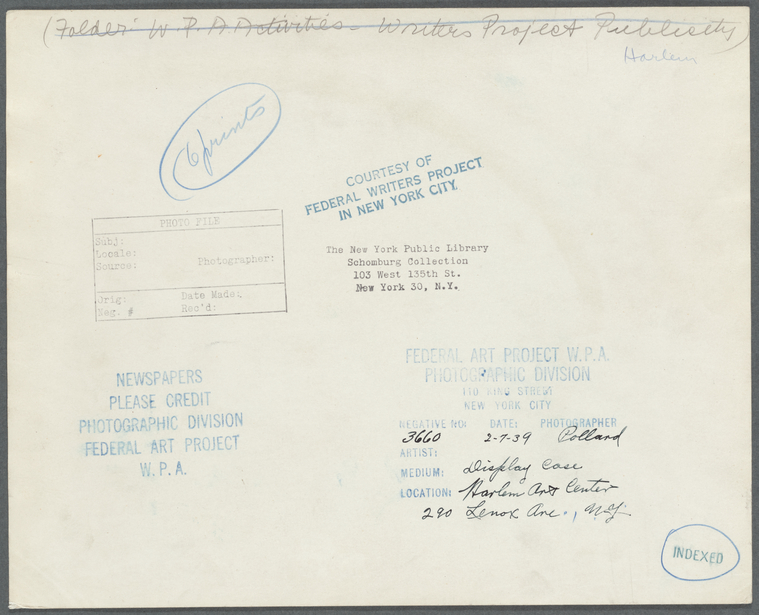 (Folder: W.P.A. Activities - Writers Project Publicity)
Harlem
6 prints
COURTESY OF
FEDERAL WRITERS PROJECT
IN NEW YORK CITY.
PHOTO FILE
Subj:
Locale:
Source: Photographer:
Orig: Date Made:
Neg. # Rec'd:
The New York Public Library
Schomburg Collection
103 West 135th St.
New York 30, N.Y.
NEWSPAPERS
PLEASE CREDIT
PHOTOGRAPHIC DIVISION
FEDERAL ART PROJECT
W.P.A.
FEDERAL ART PROJECT W.P.A.
PHOTOGRAPHIC DIVISION
110 KING STREET
NEW YORK CITY
NEGATIVE NO: DATE: PHOTOGRAPHER
3660 2-7-39 Pollard
ARTIST:
MEDIUM: Display Case
LOCATION: Harlem Art Center
290 Lenox Ave., N.Y.
INDEXED